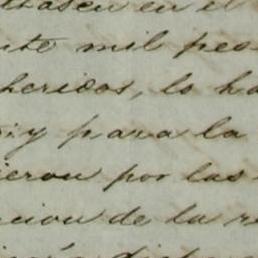 en el
mil pes
heridos, lo ha
y para la
ieron por las
cion de la re